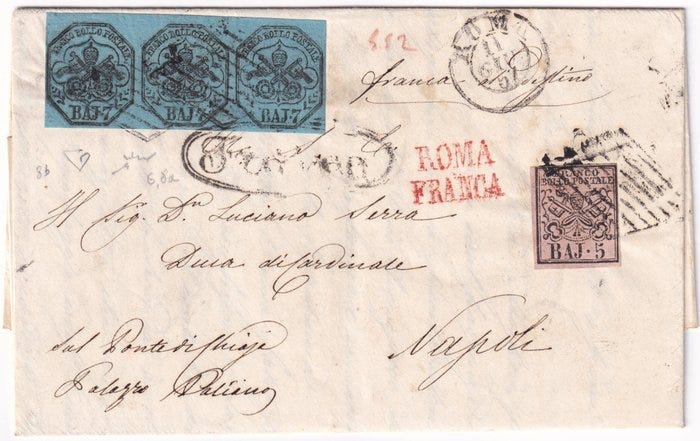 FRANCO BOLLO POSTALE FRANCO BOLLO POSTALE FRANCO BOLLO POSTALE
BAJ·7 BAJ·7 BAJ·7
8.52
ROMA
11
franca a destino
ROMA
FRANCA
83
6,8a
FRANCO
BOLLO POSTALE
BAJ·5
Il Sig. Dn Luciano Serra
Duca di Cardinale
Napoli
sul Ponte di Chiaja
Palazzo